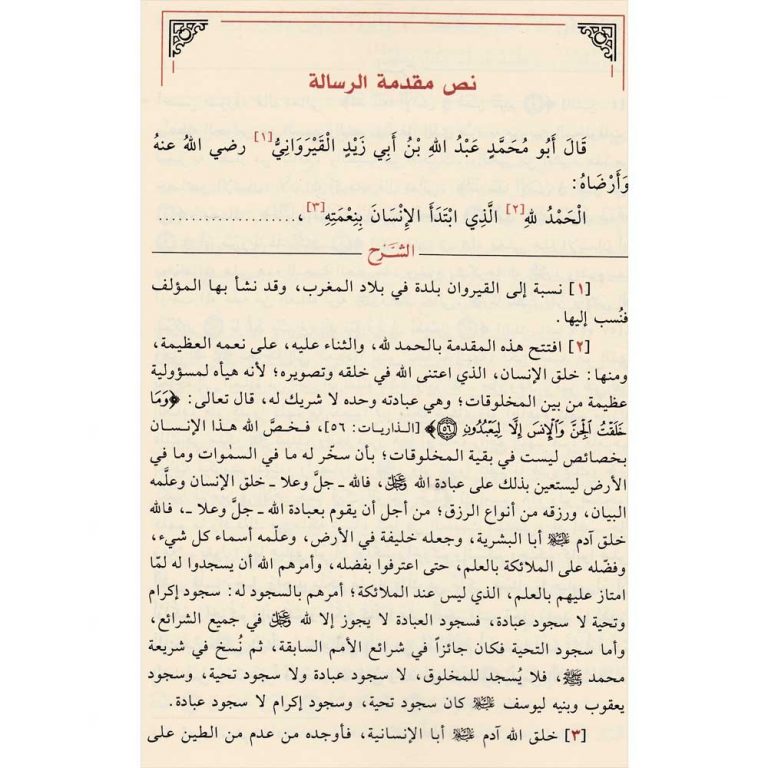 نص مقدمة الرسالة
قَالَ أَبُو مُحَمَّدٍ عَبْدُ اللهِ بْنُ أَبِي زَيْدٍ الْقَيْرَوَانِيُّ[١] رضي اللهُ عنهُ
وَأَرْضَاهُ:
الْحَمْدُ للهِ[٢] الَّذِي ابْتَدَأَ الإِنْسَانَ بِنِعْمَتِهِ[٣]، .....................
الشَّرْح
[١] نسبة إلى القيروان بلدة في بلاد المغرب، وقد نشأ بها المؤلف
فنُسب إليها.
[٢] افتتح هذه المقدمة بالحمد لله، والثناء عليه، على نعمه العظيمة،
ومنها: خلق الإنسان، الذي اعتنى الله في خلقه وتصويره؛ لأنه هيأه لمسؤولية
عظيمة من بين المخلوقات؛ وهي عبادته وحده لا شريك له، قال تعالى: ﴿وَمَا
خَلَقْتُ ٱلْجِنَّ وَٱلْإِنسَ إِلَّا لِيَعْبُدُونِ ٥٦﴾ [الذاريات: ٥٦]، فخصَّ الله هذا الإنسان
بخصائص ليست في بقية المخلوقات؛ بأن سخّر له ما في السمٰوات وما في
الأرض ليستعين بذلك على عبادة الله عز وجل، فالله ـ جلَّ وعلا ـ خلق الإنسان وعلَّمه
البيان، ورزقه من أنواع الرزق؛ من أجل أن يقوم بعبادة الله ـ جلَّ وعلا ـ، فالله
خلق آدم عليه السلام أبا البشرية، وجعله خليفة في الأرض، وعلّمه أسماء كل شيء،
وفضّله على الملائكة بالعلم، حتى اعترفوا بفضله، وأمرهم الله أن يسجدوا له لمّا
امتاز عليهم بالعلم، الذي ليس عند الملائكة؛ أمرهم بالسجود له: سجود إكرام
وتحية لا سجود عبادة، فسجود العبادة لا يجوز إلا لله عز وجل في جميع الشرائع،
وأما سجود التحية فكان جائزاً في شرائع الأمم السابقة، ثم نُسخ في شريعة
محمد ﷺ، فلا يُسجد للمخلوق، لا سجود عبادة ولا سجود تحية، وسجود
يعقوب وبنيه ليوسف عليه السلام كان سجود تحية، وسجود إكرام لا سجود عبادة.
[٣] خلق الله آدم عليه السلام أبا الإنسانية، فأوجده من عدم من الطين على